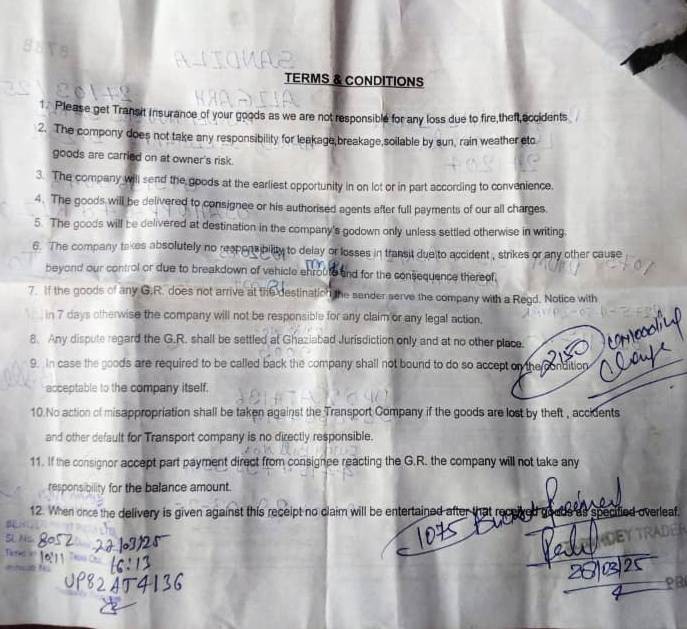 TERMS & CONDITIONS
1. Please get Transit Insurance of your goods as we are not responsible for any loss due to fire,theft,accidents
2. The compony does not take any responsibility for leakage,breakage,soilable by sun, rain weather etc.
goods are carried on at owner's risk.
3. The company will send the goods at the earliest opportunity in on lot or in part according to convenience.
4. The goods will be delivered to consignee or his authorised agents after full payments of our all charges.
5. The goods will be delivered at destination in the company's godown only unless settled otherwise in writing.
6. The company takes absolutely no responsibility to delay or losses in transit due to accident , strikes or any other cause
beyond our control or due to breakdown of vehicle enroute and for the consequence thereof.
7. If the goods of any G.R. does not arrive at the destination the sender serve the company with a Regd. Notice with
in 7 days otherwise the company will not be responsible for any claim or any legal action.
8. Any dispute regard the G.R. shall be settled at Ghaziabad Jurisdiction only and at no other place.
2150
9. In case the goods are required to be called back the company shall not bound to do so accept on the condition
acceptable to the company itself.
10.No action of misappropriation shall be taken against the Transport Company if the goods are lost by theft , accidents
and other default for Transport company is no directly responsible.
11. If the consignor accept part payment direct from consignee reacting the G.R. the company will not take any
responsibility for the balance amount.
12. When once the delivery is given against this receipt no claim will be entertained after that receipt goods as specified overleaf.
1075 Received
SL No. 8052 22/03/25
10:11 16:13
UP82AT4136
DEY TRADER
28/03/25